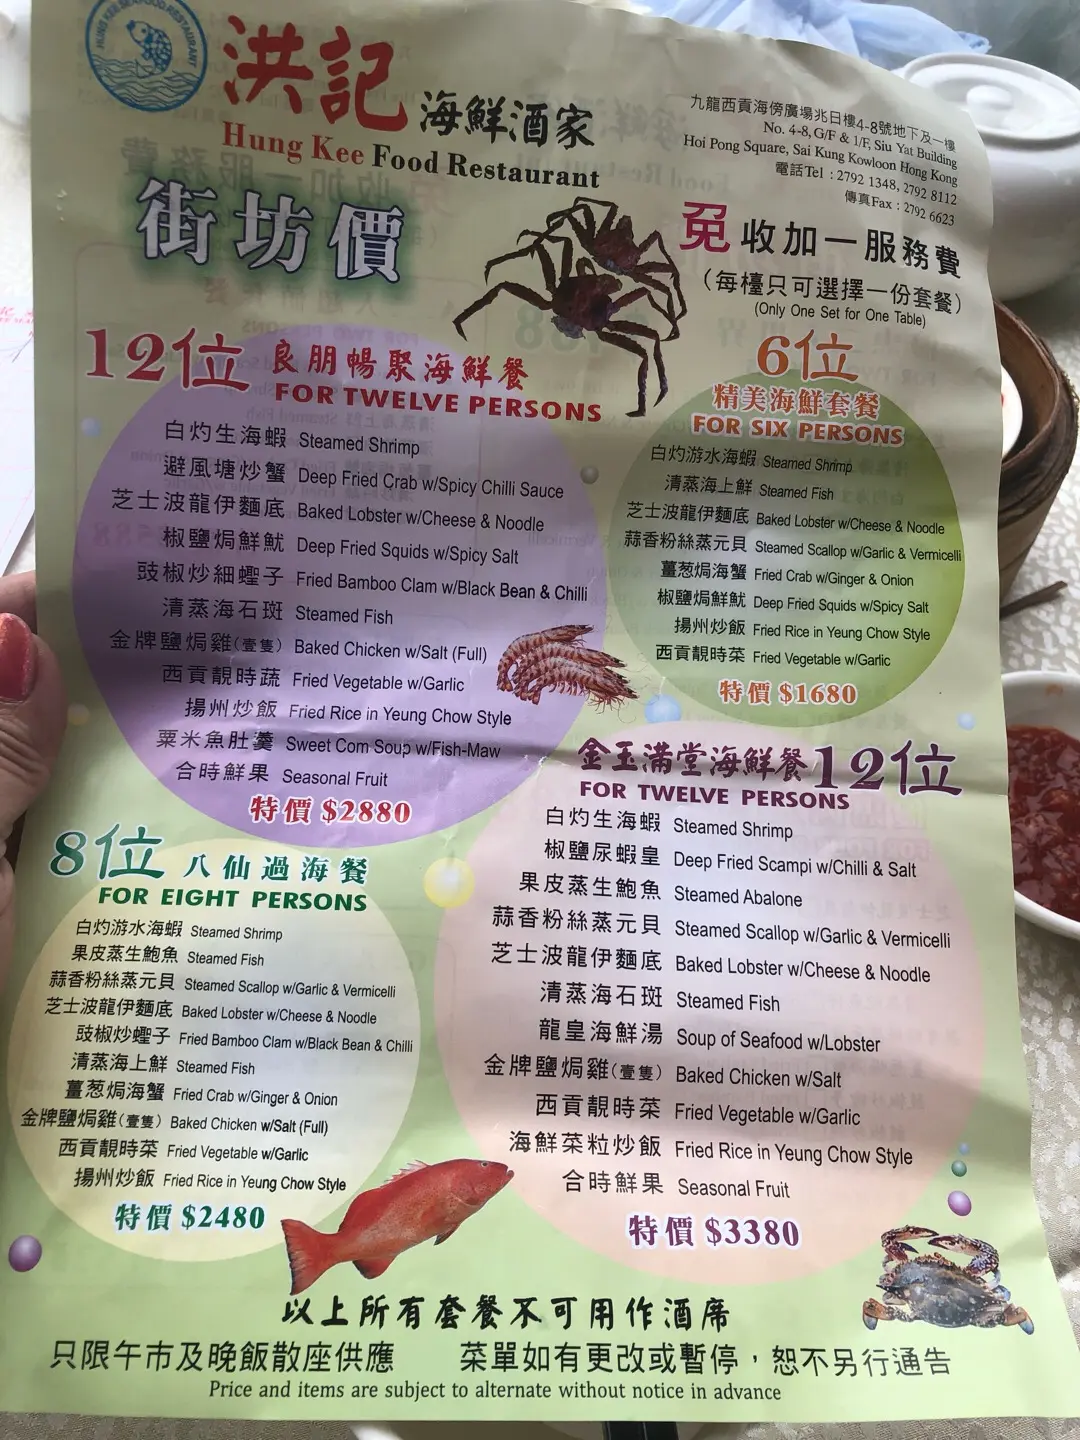 HUNG KEE SEAFOOD RESTAURANT
洪記 海鮮酒家
Hung Kee Food Restaurant
九龍西貢海傍廣場兆日樓4-8號地下及一樓
No. 4-8, G/F & 1/F, Siu Yat Building
Hoi Pong Square, Sai Kung Kowloon Hong Kong
電話Tel : 2792 1348, 2792 8112
傳真Fax : 2792 6623
街坊價
免收加一服務費
(每檯只可選擇一份套餐)
(Only One Set for One Table)
12位 良朋暢聚海鮮餐
FOR TWELVE PERSONS
白灼生海蝦 Steamed Shrimp
避風塘炒蟹 Deep Fried Crab w/Spicy Chilli Sauce
芝士波龍伊麵底 Baked Lobster w/Cheese & Noodle
椒鹽焗鮮魷 Deep Fried Squids w/Spicy Salt
豉椒炒細蟶子 Fried Bamboo Clam w/Black Bean & Chilli
清蒸海石斑 Steamed Fish
金牌鹽焗雞(壹隻) Baked Chicken w/Salt (Full)
西貢靚時蔬 Fried Vegetable w/Garlic
揚州炒飯 Fried Rice in Yeung Chow Style
粟米魚肚羹 Sweet Corn Soup w/Fish-Maw
合時鮮果 Seasonal Fruit
特價 $2880
6位
精美海鮮套餐
FOR SIX PERSONS
白灼游水海蝦 Steamed Shrimp
清蒸海上鮮 Steamed Fish
芝士波龍伊麵底 Baked Lobster w/Cheese & Noodle
蒜香粉絲蒸元貝 Steamed Scallop w/Garlic & Vermicelli
薑葱焗海蟹 Fried Crab w/Ginger & Onion
椒鹽焗鮮魷 Deep Fried Squids w/Spicy Salt
揚州炒飯 Fried Rice in Yeung Chow Style
西貢靚時菜 Fried Vegetable w/Garlic
特價 $1680
8位 八仙過海餐
FOR EIGHT PERSONS
白灼游水海蝦 Steamed Shrimp
果皮蒸生鮑魚 Steamed Fish
蒜香粉絲蒸元貝 Steamed Scallop w/Garlic & Vermicelli
芝士波龍伊麵底 Baked Lobster w/Cheese & Noodle
豉椒炒蟶子 Fried Bamboo Clam w/Black Bean & Chilli
清蒸海上鮮 Steamed Fish
薑葱焗海蟹 Fried Crab w/Ginger & Onion
金牌鹽焗雞(壹隻) Baked Chicken w/Salt (Full)
西貢靚時菜 Fried Vegetable w/Garlic
揚州炒飯 Fried Rice in Yeung Chow Style
特價 $2480
金玉滿堂海鮮餐 12位
FOR TWELVE PERSONS
白灼生海蝦 Steamed Shrimp
椒鹽尿蝦皇 Deep Fried Scampi w/Chilli & Salt
果皮蒸生鮑魚 Steamed Abalone
蒜香粉絲蒸元貝 Steamed Scallop w/Garlic & Vermicelli
芝士波龍伊麵底 Baked Lobster w/Cheese & Noodle
清蒸海石斑 Steamed Fish
龍皇海鮮湯 Soup of Seafood w/Lobster
金牌鹽焗雞(壹隻) Baked Chicken w/Salt
西貢靚時菜 Fried Vegetable w/Garlic
海鮮菜粒炒飯 Fried Rice in Yeung Chow Style
合時鮮果 Seasonal Fruit
特價 $3380
以上所有套餐不可用作酒席
只限午市及晚飯散座供應 菜單如有更改或暫停，恕不另行通告
Price and items are subject to alternate without notice in advance